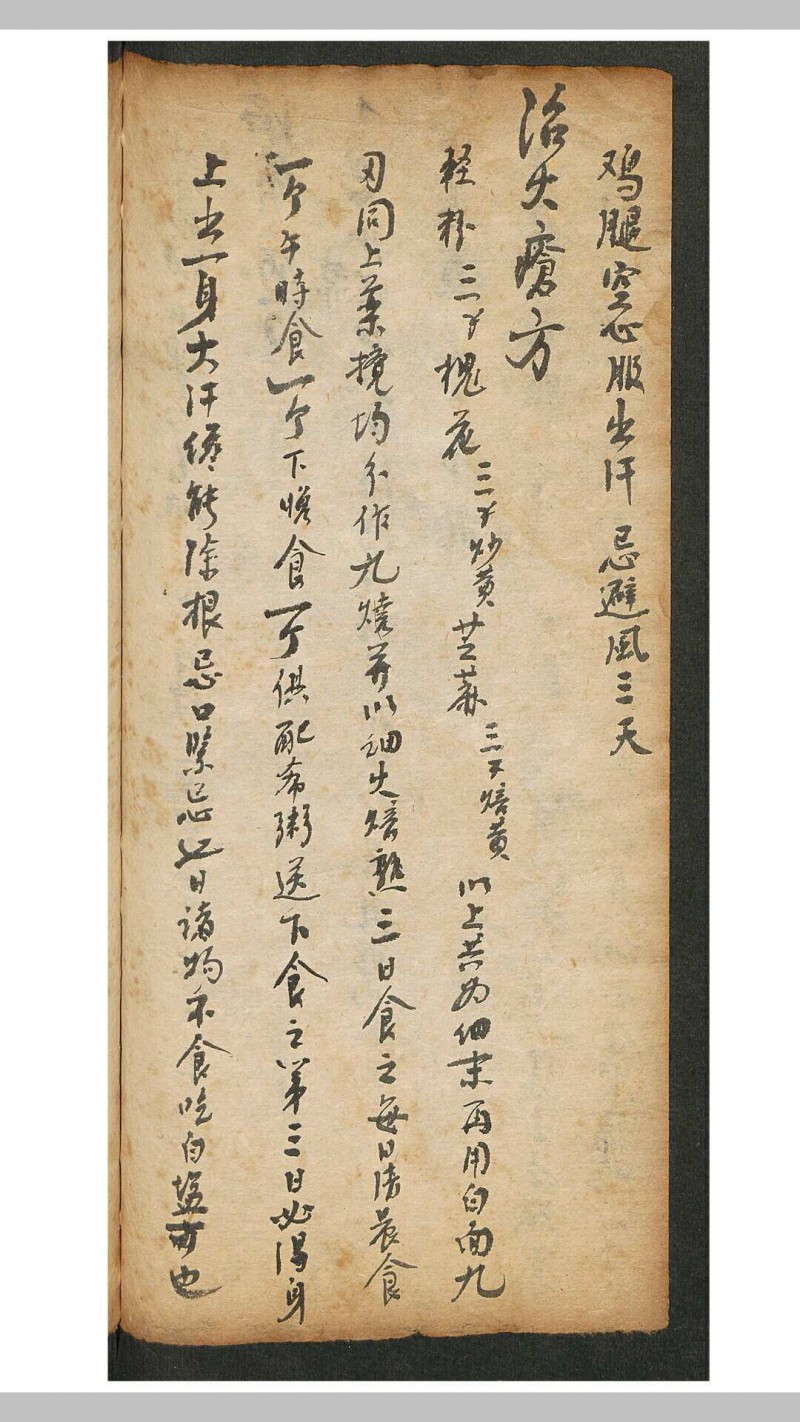 鸡腿空心服出汗 忌避风三天
治大瘡方
轻粉三个 槐花三个炒黄 芝蔴三个焙黄 以上共为细末再用白面九
刃同上药搅均分作九烧并以细火焙熟三日食之每日清晨食
一个午時食一个下晚食一个俱配希粥送下食之第三日必得身
上出一身大汗總能除根忌口緊忌七日诸物不食吃白塩可也